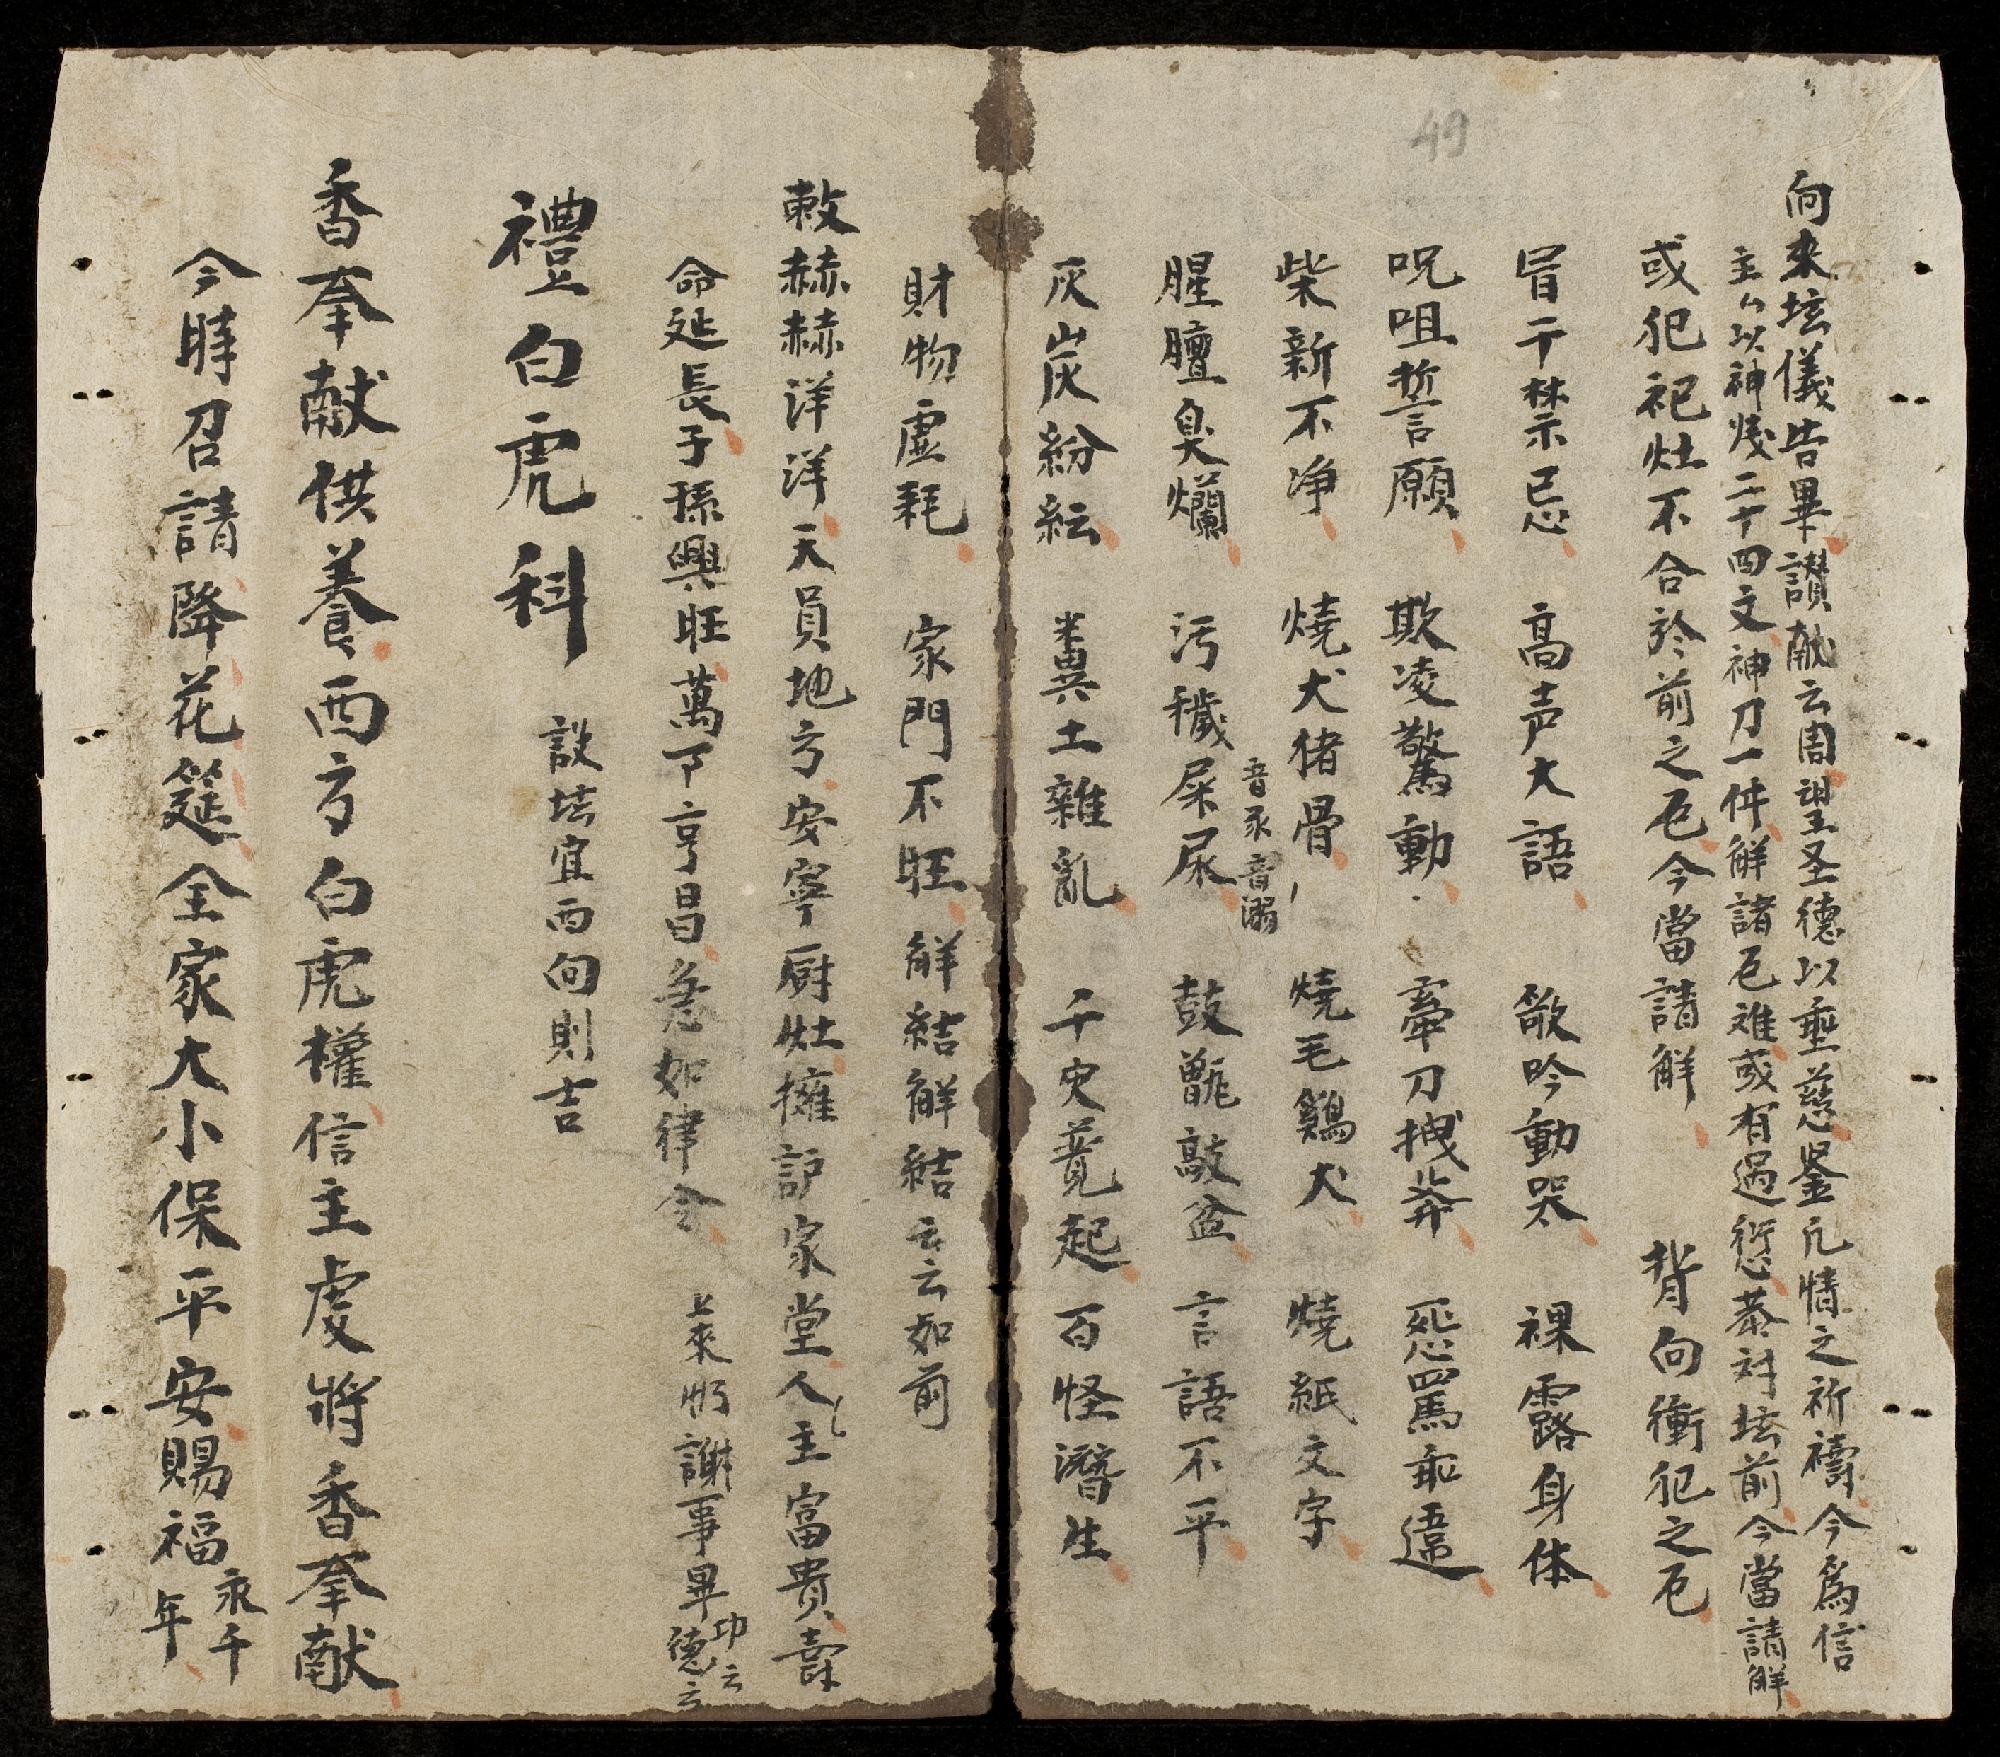 49
向来坛儀告畢讃献云周望圣德以垂慈鉴凢情之祈禱今爲信
主以神戋二十四文神刀一件解諸厄难或有過愆恭対坛前今當請解
或犯祀灶不合於前之厄今當請解 背向衝犯之厄
冒干禁忌 高声大語 歌吟動哭 裸露身体
呪咀誓願 欺凌驚動 牽刀拽 惡罵乖違
柴新不净 燒犬猪骨 燒毛鷄犬 燒紙文字
腥膻臭爛 污穢屎尿 音 音溺 鼓甑敲盆 言語不平
灰炭紛紜 糞土雜乱 千灾竟起 百怪潛生
財物虚耗 家門不旺 解結解結云云如前
敕赫赫洋洋天員地方安寧厨灶擁护家堂人主富貴壽
命延長子孫興旺萬下亨昌急如律令 謝事畢功德云云
禮白虎科 設坛宜西向則吉
香奉献供養西方白虎權信主虔將香奉献
今時召請降花筵全家大小保平安賜福永千年